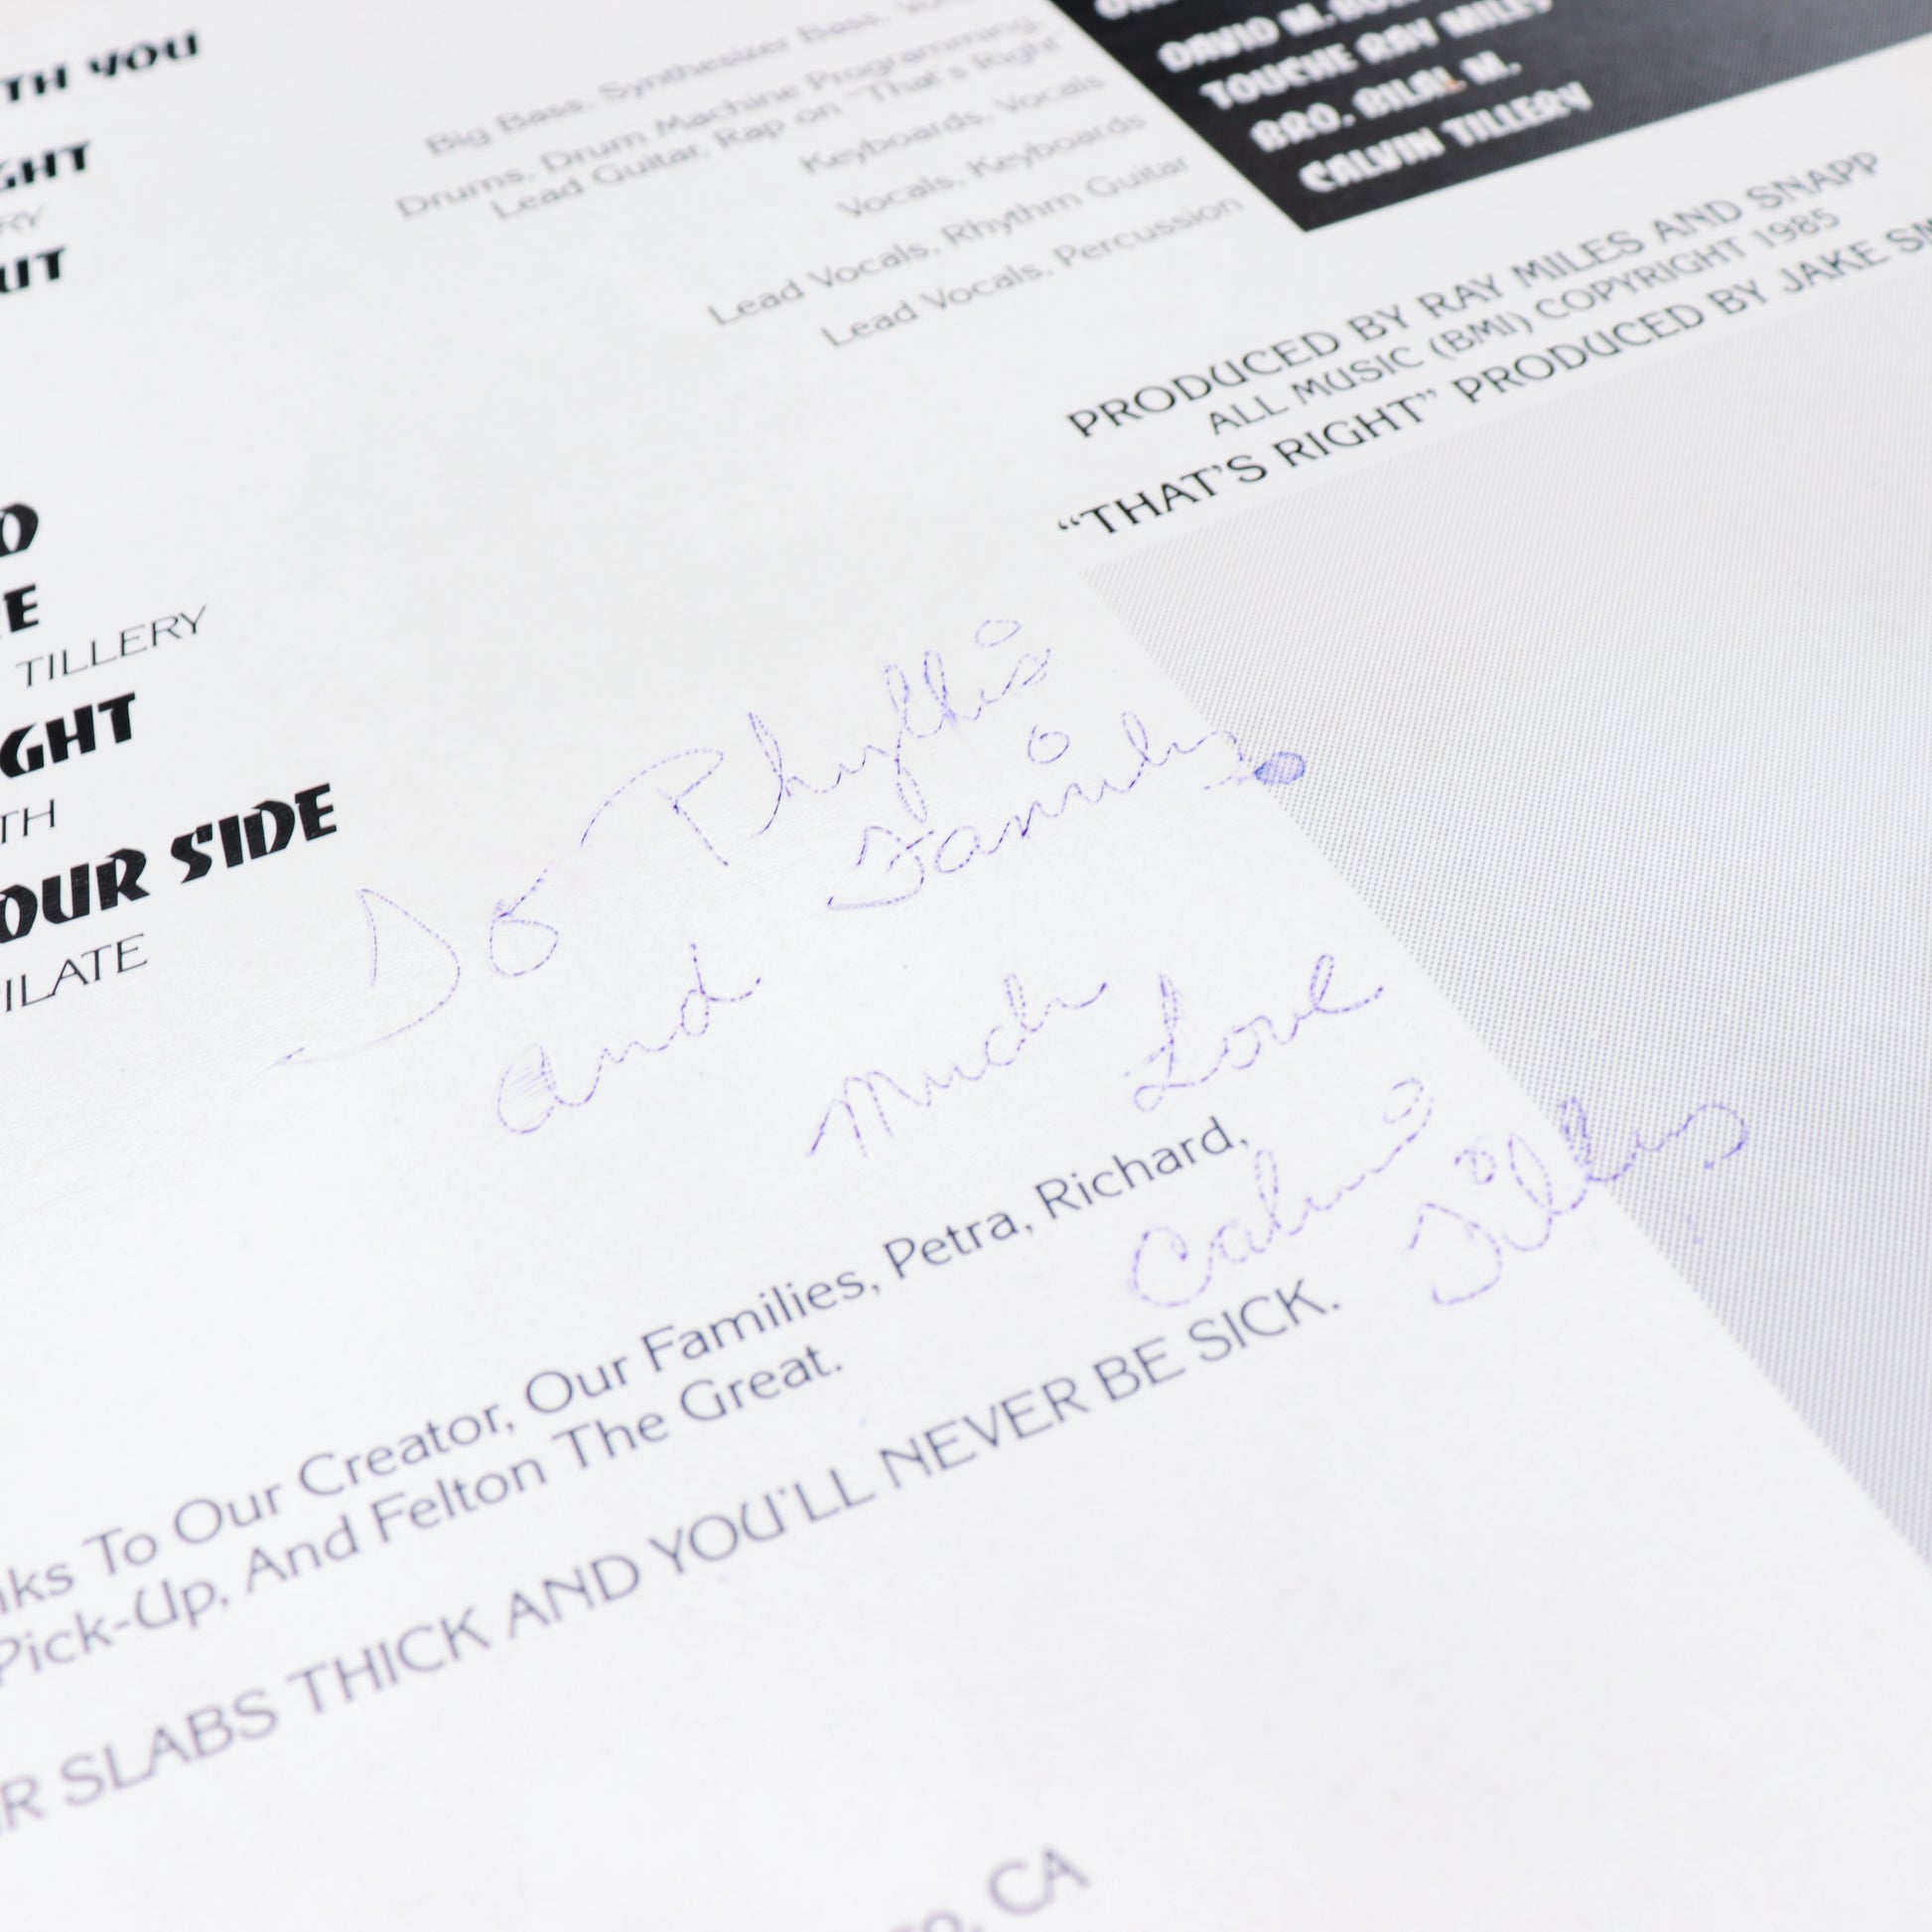 TH YOU
GHT
RY
UT
D
E
TILLERY
GHT
TH
OUR SIDE
ILATE
Big Bass, Synthesizer Bass,
Drums, Drum Machine Programming,
Lead Guitar, Rap on "That's Right"
Keyboards, Vocals
Vocals, Keyboards
Lead Vocals, Rhythm Guitar
Lead Vocals, Percussion
DAVID M.
TOUCHE RAY MILES
BRO. BILAL M.
CALVIN TILLERY
PRODUCED BY RAY MILES AND SNAPP
ALL MUSIC (BMI) COPYRIGHT 1985
"THAT'S RIGHT" PRODUCED BY JAKE SM
To Phyllis
and Family.
Much Love
Calvin Tillery
nks To Our Creator, Our Families, Petra, Richard,
Pick-Up, And Felton The Great.
R SLABS THICK AND YOU'LL NEVER BE SICK.
o, CA